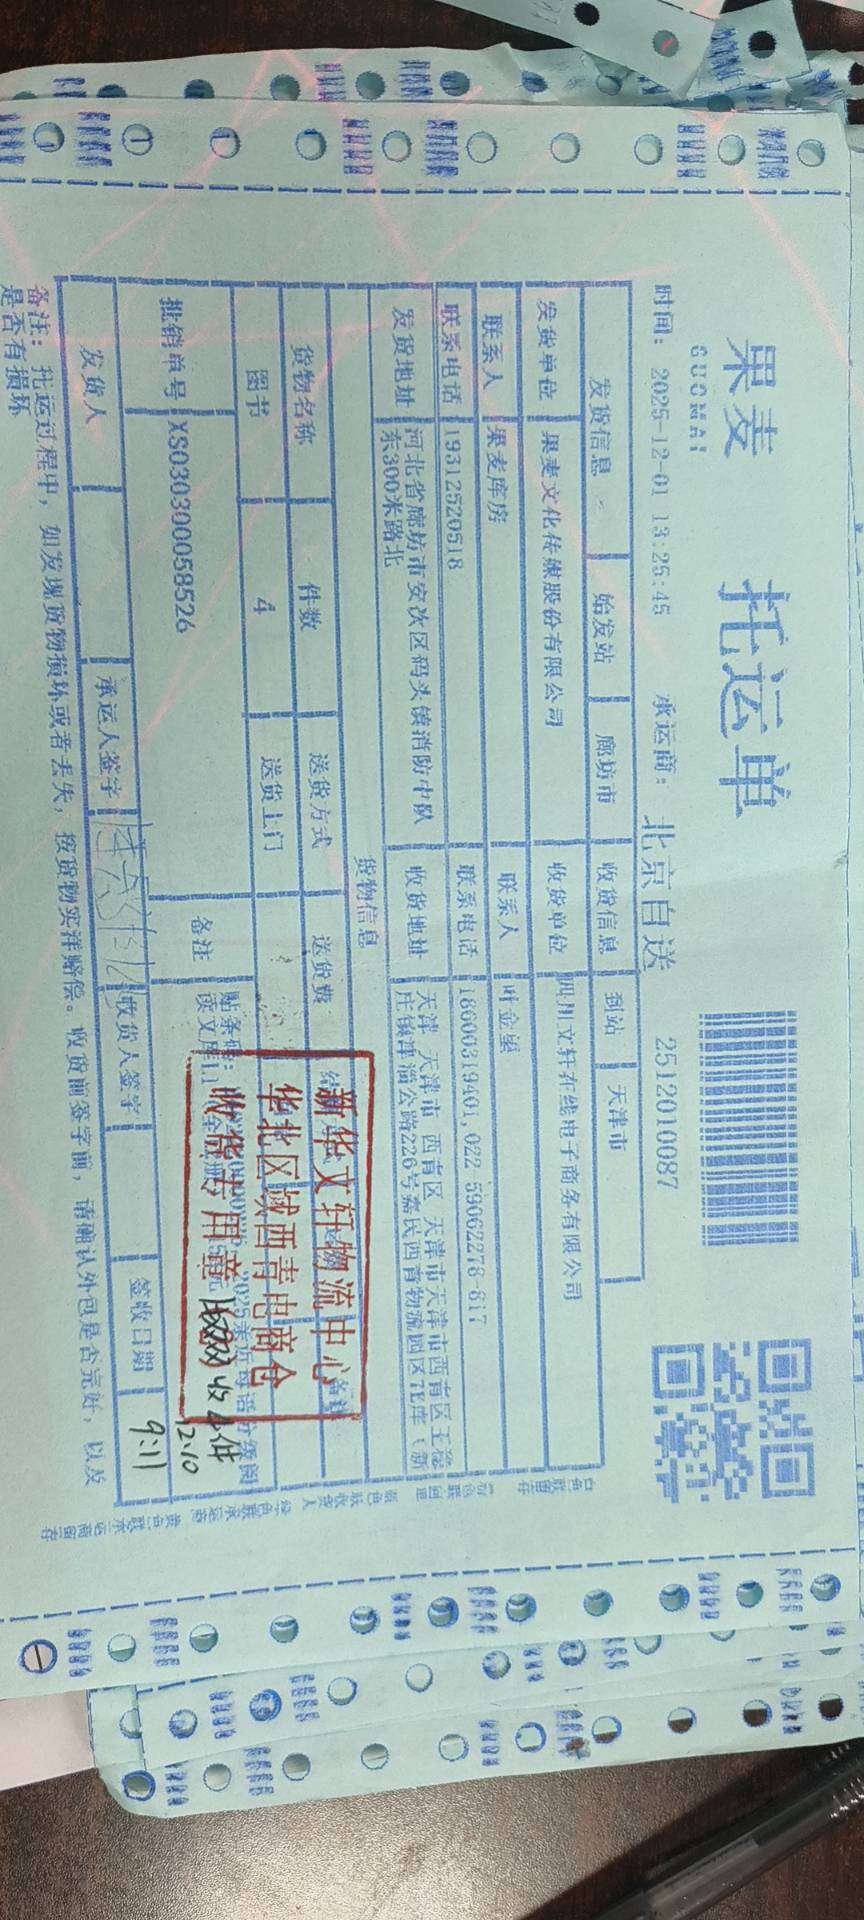 果麦
GUOMAI
托运单
时间: 2025-12-01 13:25:45
承运商: 北京自送
2512010087
发货信息 始发站 廊坊市 收货信息 到站 天津市
发货单位 果麦文化传媒股份有限公司 收货单位 四川文轩在线电子商务有限公司
联系人 果麦库房 联系人 叶金星
联系电话 19312520518 联系电话 18000319401,022-59062278-817
发货地址 河北省廊坊市安次区码头镇消防中队
东300米路北
收货地址 天津 天津市 西青区 天津市天津市西青区王稳
庄镇津淄公路226号嘉民西青物流园区7E库(新
货物信息
货物名称 件数 送货方式 送货费 备注
图书 4 送货上门
批销单号 XS030300058526 备注
贴条码:
读文库
新华文轩物流中心
华北区域西青电商仓
收货专用章
收4件
12.10
9:11
发货人 承运人签字 收货人签字 签收日期
备注: 托运过程中, 如发现货物损坏或者丢失, 按货物实洋赔偿。收货前签字前, 请确认外包是否完好, 以及
是否有损坏
白色联留存